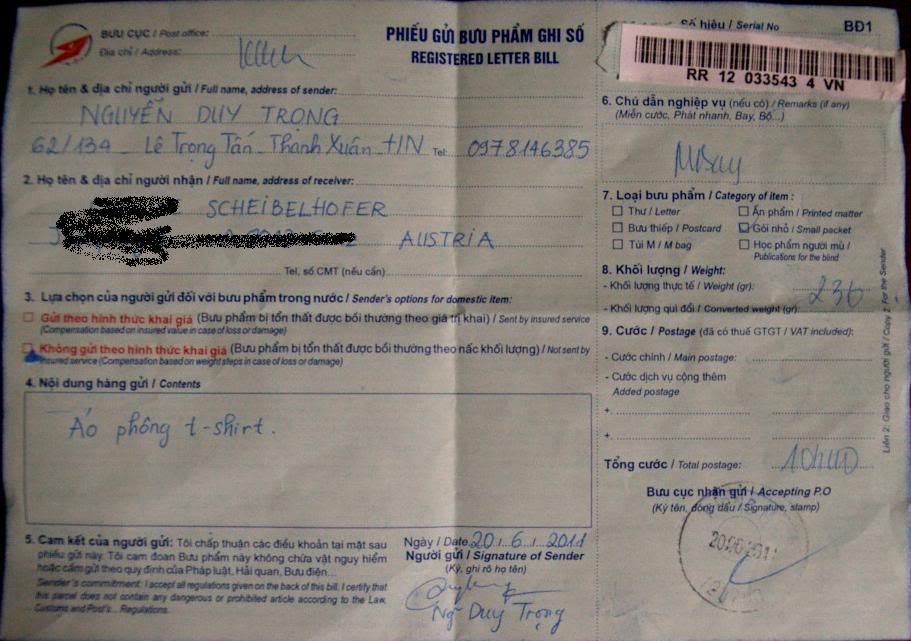 BƯU CỤC / Post office:
Địa chỉ / Address:
PHIẾU GỬI BƯU PHẨM GHI SỐ
REGISTERED LETTER BILL
Số hiệu / Serial No
BĐ1
RR 12 033543 4 VN
1. Họ tên & địa chỉ người gửi / Full name, address of sender:
NGUYỄN DUY TRỌNG
62/134 - Lê Trọng Tấn - Thanh Xuân HN Tel: 0978146385
2. Họ tên & địa chỉ người nhận / Full name, address of receiver:
SCHEIBELHOFER
AUSTRIA
Tel, số CMT (nếu cần)
3. Lựa chọn của người gửi đối với bưu phẩm trong nước / Sender's options for domestic item:
Gửi theo hình thức khai giá (Bưu phẩm bị tổn thất được bồi thường theo giá trị khai) / Sent by insured service
(Compensation based on insured value in case of loss or damage)
Không gửi theo hình thức khai giá (Bưu phẩm bị tổn thất được bồi thường theo nấc khối lượng) / Not sent by
insured service (Compensation based on weight steps in case of loss or damage)
4. Nội dung hàng gửi / Contents
Áo phông t-shirt.
5. Cam kết của người gửi: Tôi chấp thuận các điều khoản tại mặt sau
phiếu gửi này. Tôi cam đoan Bưu phẩm này không chứa vật nguy hiểm
hoặc cấm gửi theo quy định của Pháp luật, Hải quan, Bưu điện...
Sender's commitment: I accept all regulations given on the back of this bill, I certify that
this parcel does not contain any dangerous or prohibited article according to the Law,
Customs and Post's... Regulations.
Ngày / Date 20.6.2011
Người gửi / Signature of Sender
(Ký, ghi rõ họ tên)
Ng Duy Trọng
6. Chú dẫn nghiệp vụ (nếu có) / Remarks (if any)
(Miễn cước, Phát nhanh, Bay, Bộ...)
MBay
7. Loại bưu phẩm / Category of item :
Thư / Letter
Ấn phẩm / Printed matter
Bưu thiếp / Postcard
Gói nhỏ / Small packet
Túi M / M bag
Học phẩm người mù /
Publications for the blind
8. Khối lượng / Weight:
- Khối lượng thực tế / Weight (gr): 236
- Khối lượng qui đổi / Converted weight (gr):
9. Cước / Postage (đã có thuế GTGT / VAT included):
- Cước chính / Main postage:
- Cước dịch vụ cộng thêm
Added postage
+
+
Tổng cước / Total postage:
Bưu cục nhận gửi / Accepting P.O
(Ký tên, đóng dấu / Signature, stamp)
Liên 2: Giao cho người gửi / Copy 2: For the Sender